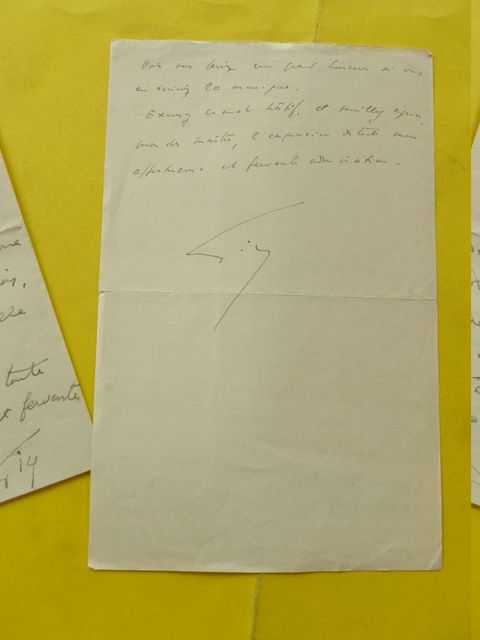 Vous me feriez un grand honneur si vous
en écriviez la musique.
Excusez ce mot hâtif, et veuillez agréer,
mon cher maître, l'expression de toute mon
affectueuse et fervente admiration.
toute
et fervente